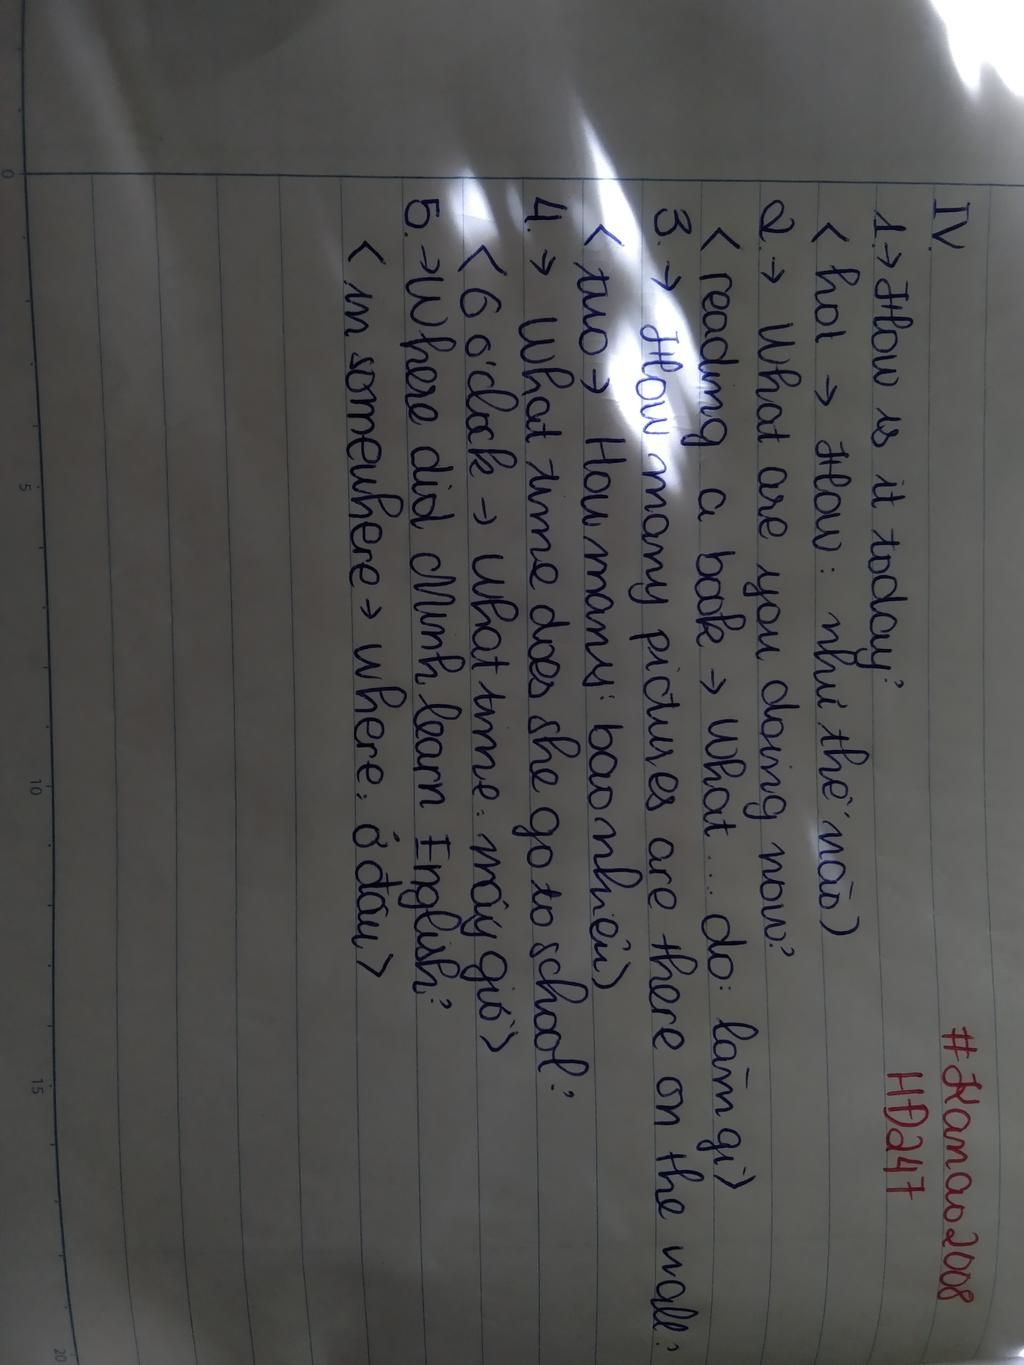 #Kanao2008
IV.
HĐ247
1. → How is it today?
< hot → How : như thế nào >
2. → What are you doing now?
< reading a book → What ... do : làm gì >
3. → How many pictures are there on the wall?
< two → How many : bao nhiêu >
4. → What time does she go to school?
< 6 o'clock → What time : mấy giờ >
5. → Where did Minh learn English?
< in somewhere → where : ở đâu >
0
5
10
15
20